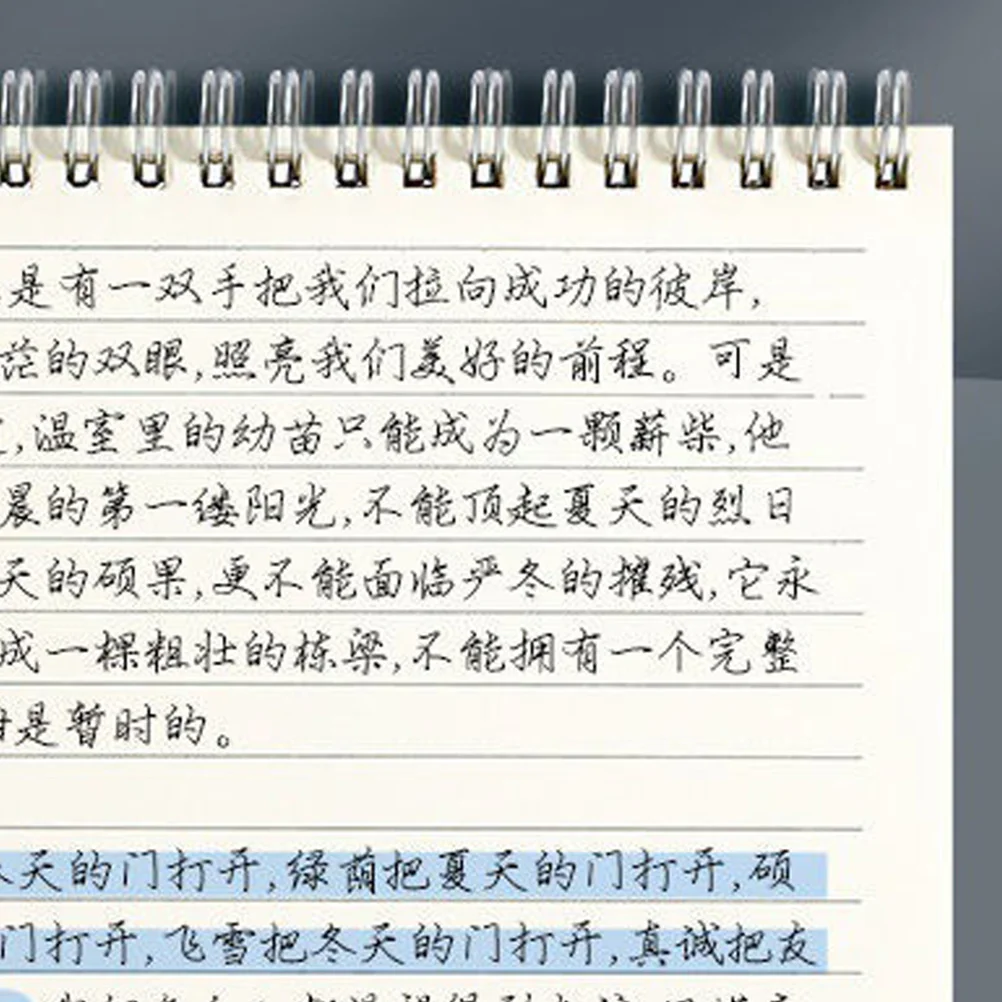 是有一双手把我们拉向成功的彼岸,
茫的双眼,照亮我们美好的前程。可是
,温室里的幼苗只能成为一颗薪柴,他
晨的第一缕阳光,不能顶起夏天的烈日
天的硕果,更不能面临严冬的摧残,它永
成一棵粗壮的栋梁,不能拥有一个完整
是暂时的。
天的门打开,绿荫把夏天的门打开,硕
门打开,飞雪把冬天的门打开,真诚把友